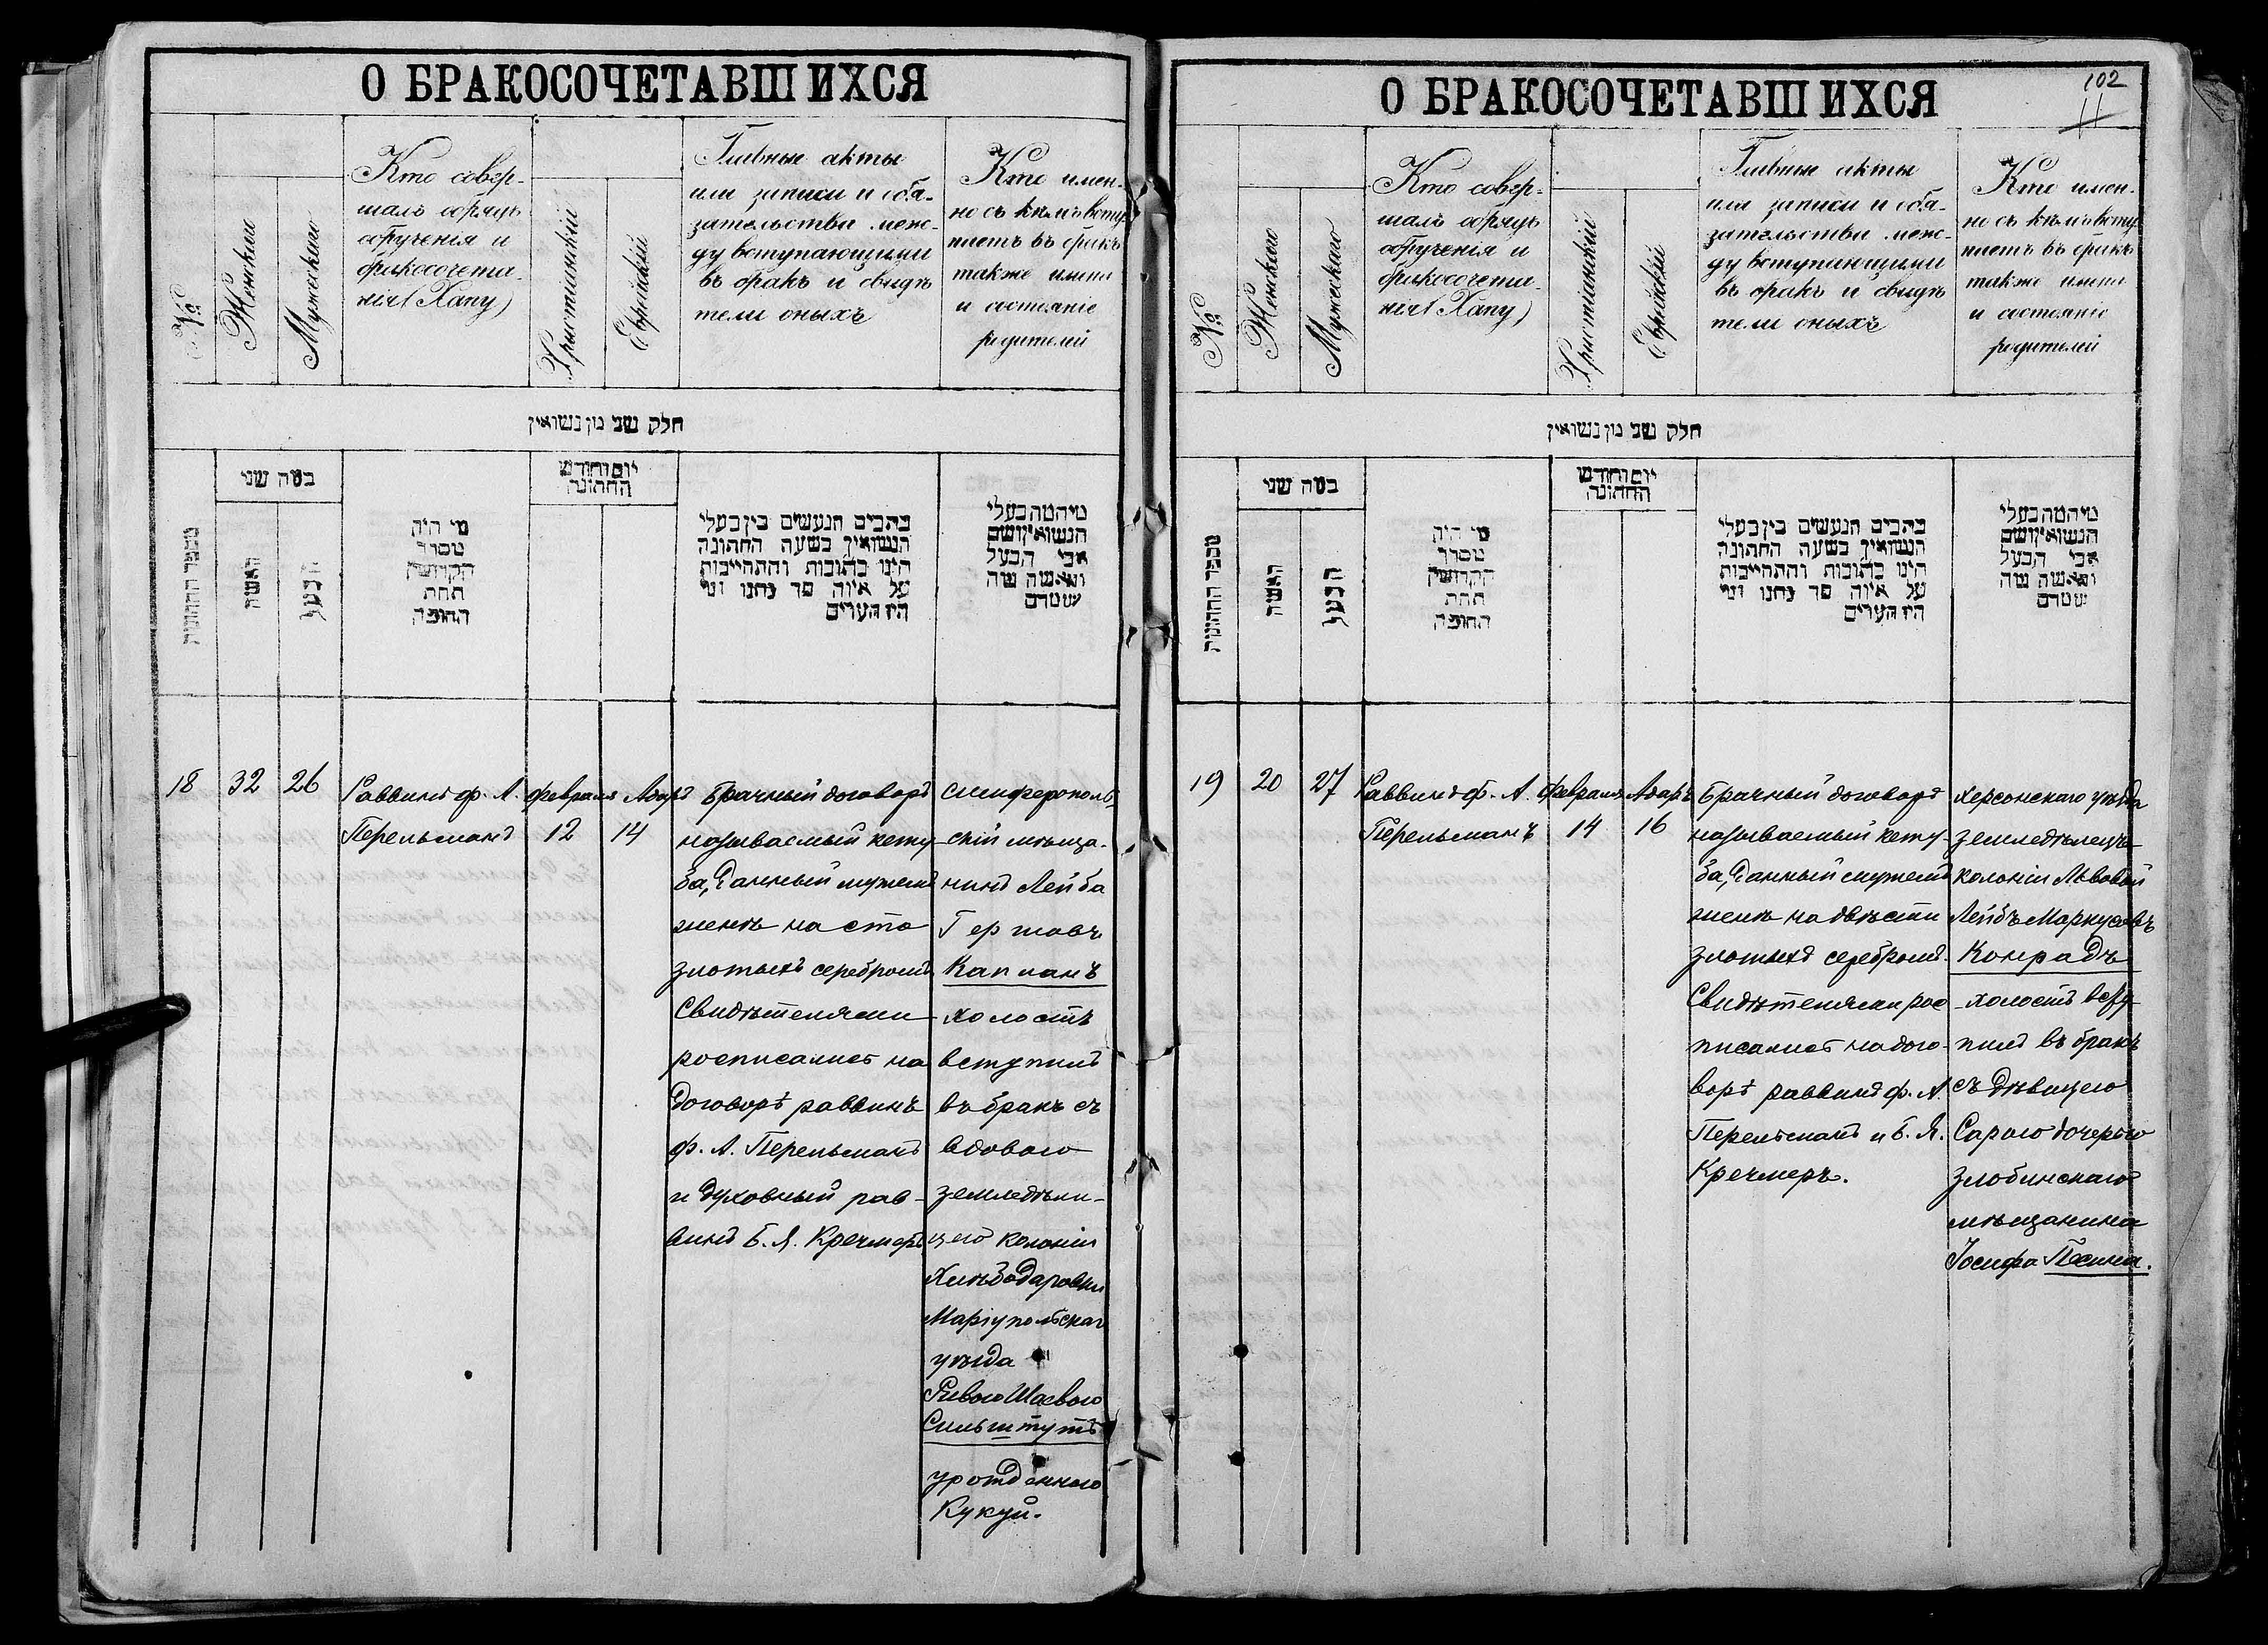 О БРАКОСОЧЕТАВШИХСЯ
№
Женскаго
Мужескаго
Кто совер-
шалъ обрядъ
обрученія и
бракосочета-
нія (Хапу)
Христіанскій
Еврейскій
Главные акты
или записи и обя-
зательства меж-
ду вступающими
въ бракъ и свидѣ
тели оныхъ
Кто имен-
но съ кѣмъ всту
паетъ въ бракъ
также имена
и состояніе
родителей
חלק שני מן נשואין
מספר החתונות
כמה שני
האשה
הבעל
מי היה
מסדר
הקדושין
תחת
החופה
יום וחודש
החתונה
כתבים הנעשים בין בעלי
הנשואין בשעה החתונה
הינו כתובות והתחייבות
על איזה סך נתנו ומי
היו העדים
מי המה בעלי
הנשואין ושם
אבי הבעל
והאשה מה
שמם
18
32
26
Раввинъ ф. А.
Перельманъ
Февраля
12
Адаръ
14
Брачный договоръ
называемый кету-
ба, данный мужемъ
женѣ на сто
злотыхъ серебромъ
Свидѣтелями
росписались на
договорѣ раввинъ
ф. А. Перельманъ
и духовный рав-
винъ Б. Я. Кречмеръ
Симферополь-
скій мѣща-
нинъ Лейба
Гершовъ
Капланъ
холостъ
вступилъ
въ бракъ съ
вдовою
земледѣли-
цею колоніи
Хлѣбодаровки
Маріупольскаго
уѣзда
Ривою Шаевою
Сильштутъ
урожденною
Кукуй.
О БРАКОСОЧЕТАВШИХСЯ
102
11
№
Женскаго
Мужескаго
Кто совер-
шалъ обрядъ
обрученія и
бракосочета-
нія (Хапу)
Христіанскій
Еврейскій
Главные акты
или записи и обя-
зательства меж-
ду вступающими
въ бракъ и свидѣ
тели оныхъ
Кто имен-
но съ кѣмъ всту
паетъ въ бракъ
также имена
и состояніе
родителей
חלק שני מן נשואין
מספר החתונות
כמה שני
האשה
הבעל
מי היה
מסדר
הקדושין
תחת
החופה
יום וחודש
החתונה
כתבים הנעשים בין בעלי
הנשואין בשעה החתונה
הינו כתובות והתחייבות
על איזה סך נתנו ומי
היו העדים
מי המה בעלי
הנשואין ושם
אבי הבעל
והאשה מה
שמם
19
20
27
Раввинъ ф. А.
Перельманъ
Февраля
14
Адаръ
16
Брачный договоръ
называемый кету-
ба, данный мужемъ
женѣ на двѣсти
злотыхъ серебромъ.
Свидѣтелями рос
писались на дого-
ворѣ раввинъ ф. А.
Перельманъ и Б. Я.
Кречмеръ.
Херсонскаго уѣзда
земледѣлецъ
колоніи Львовой
Лейбъ Маркусовъ
Конрадъ
холостъ всту-
пилъ въ бракъ
съ дѣвицею
Сарою дочерью
Злобинскаго
мѣщанина
Іосифа Песина.